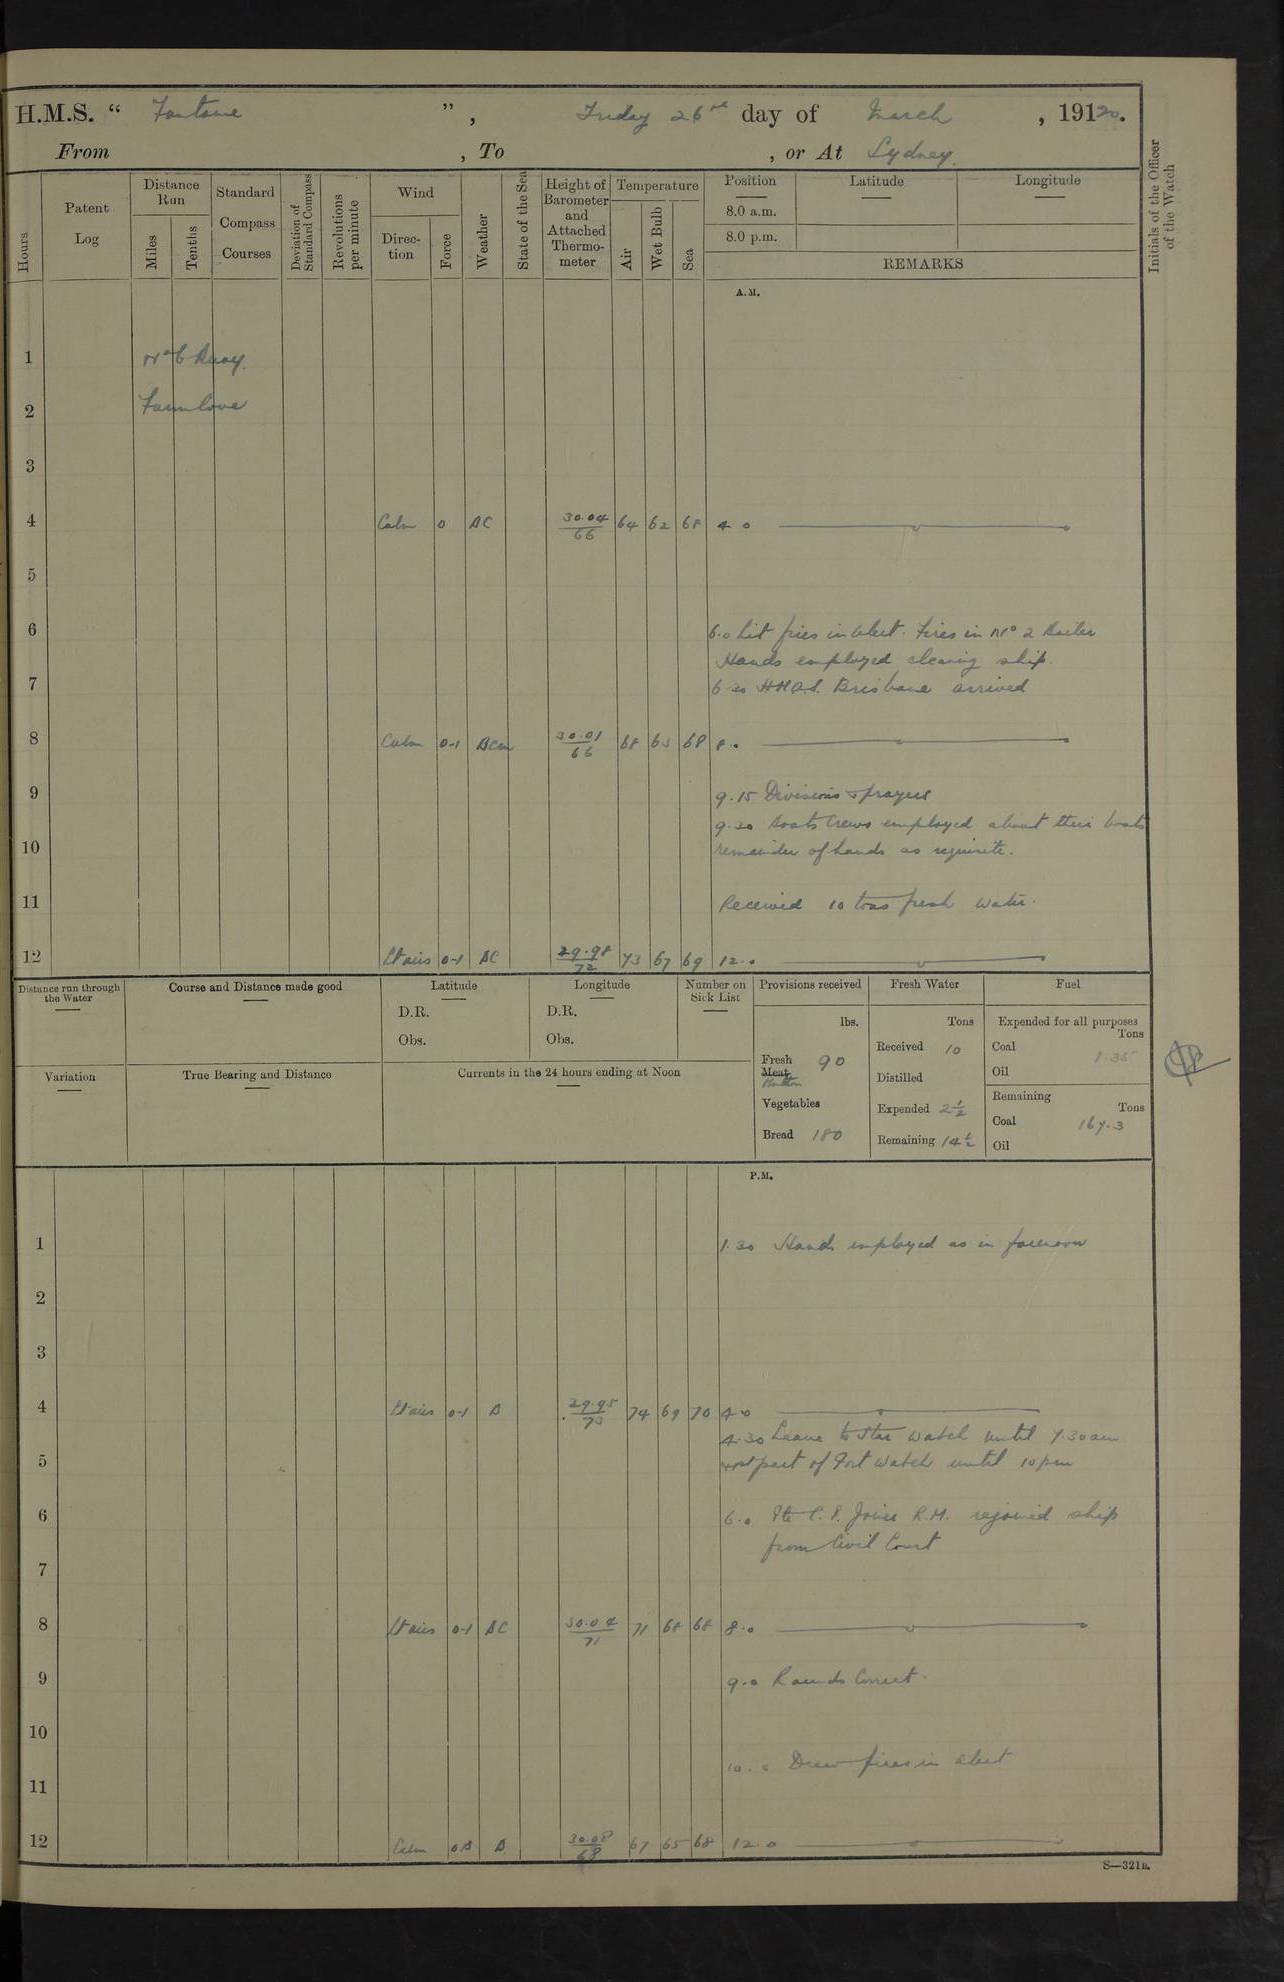 H.M.S. “ Fantome ”, Friday 26 day of March , 19120.
From , To , or At Sydney.
Hours
Patent Log
Distance Run
Miles
Tenths
Standard Compass Courses
Deviation of Standard Compass
Revolutions per minute
Wind
Direc-tion
Force
Weather
State of the Sea
Height of Barometer and Attached Thermo-meter
Temperature
Air
Wet Bulb
Sea
Position
8.0 a.m.
8.0 p.m.
Latitude
Longitude
REMARKS
Initials of the Officer of the Watch
A.M.
1 No 6 Buoy.
2 Farm Cove
3
4 Calm 0 BC 30.04 66 64 62 68 4 0
5
6 6.0 Lit fires in Cutter. Fires in No 2 Boiler
Hands employed cleaning ship.
7 6 30 HMAS. Brisbane arrived
8 Calm 0-1 BCm 30.01 66 68 63 68 8.0
9 9.15 Divisions & prayers
9.30 Boats Crews employed about their boats
10 remainder of hands as requisite.
11 Received 10 tons fresh water.
12 Lt airs 0-1 BC 29.98 72 73 67 69 12.0
Distance run through the Water
Course and Distance made good
Latitude
D.R.
Obs.
Longitude
D.R.
Obs.
Number on Sick List
Provisions received
lbs.
Fresh Meat 90
Mutton
Vegetables
Bread 180
Fresh Water
Tons
Received 10
Distilled
Expended 2½
Remaining 14½
Fuel
Expended for all purposes
Tons
Coal 1.35
Oil
Remaining
Tons
Coal 167.3
Oil
Variation
True Bearing and Distance
Currents in the 24 hours ending at Noon
P.M.
1 1.30 Hands employed as in forenoon
2
3
4 Lt airs 0-1 B 29.95 73 74 69 70 4.0
4.30 Leave to Star Watch until 7.30am
5 part of Port Watch until 10pm
6 6.0 Pte Jones R.M. rejoined ship
from Civil Court
7
8 Lt airs 0-1 BC 30.04 71 71 68 68 8.0
9 9.0 Rounds Correct.
10
10.0 Drew fires in
11
12 Calm B 30.08 68 67 65 68 12.0
S—321B.